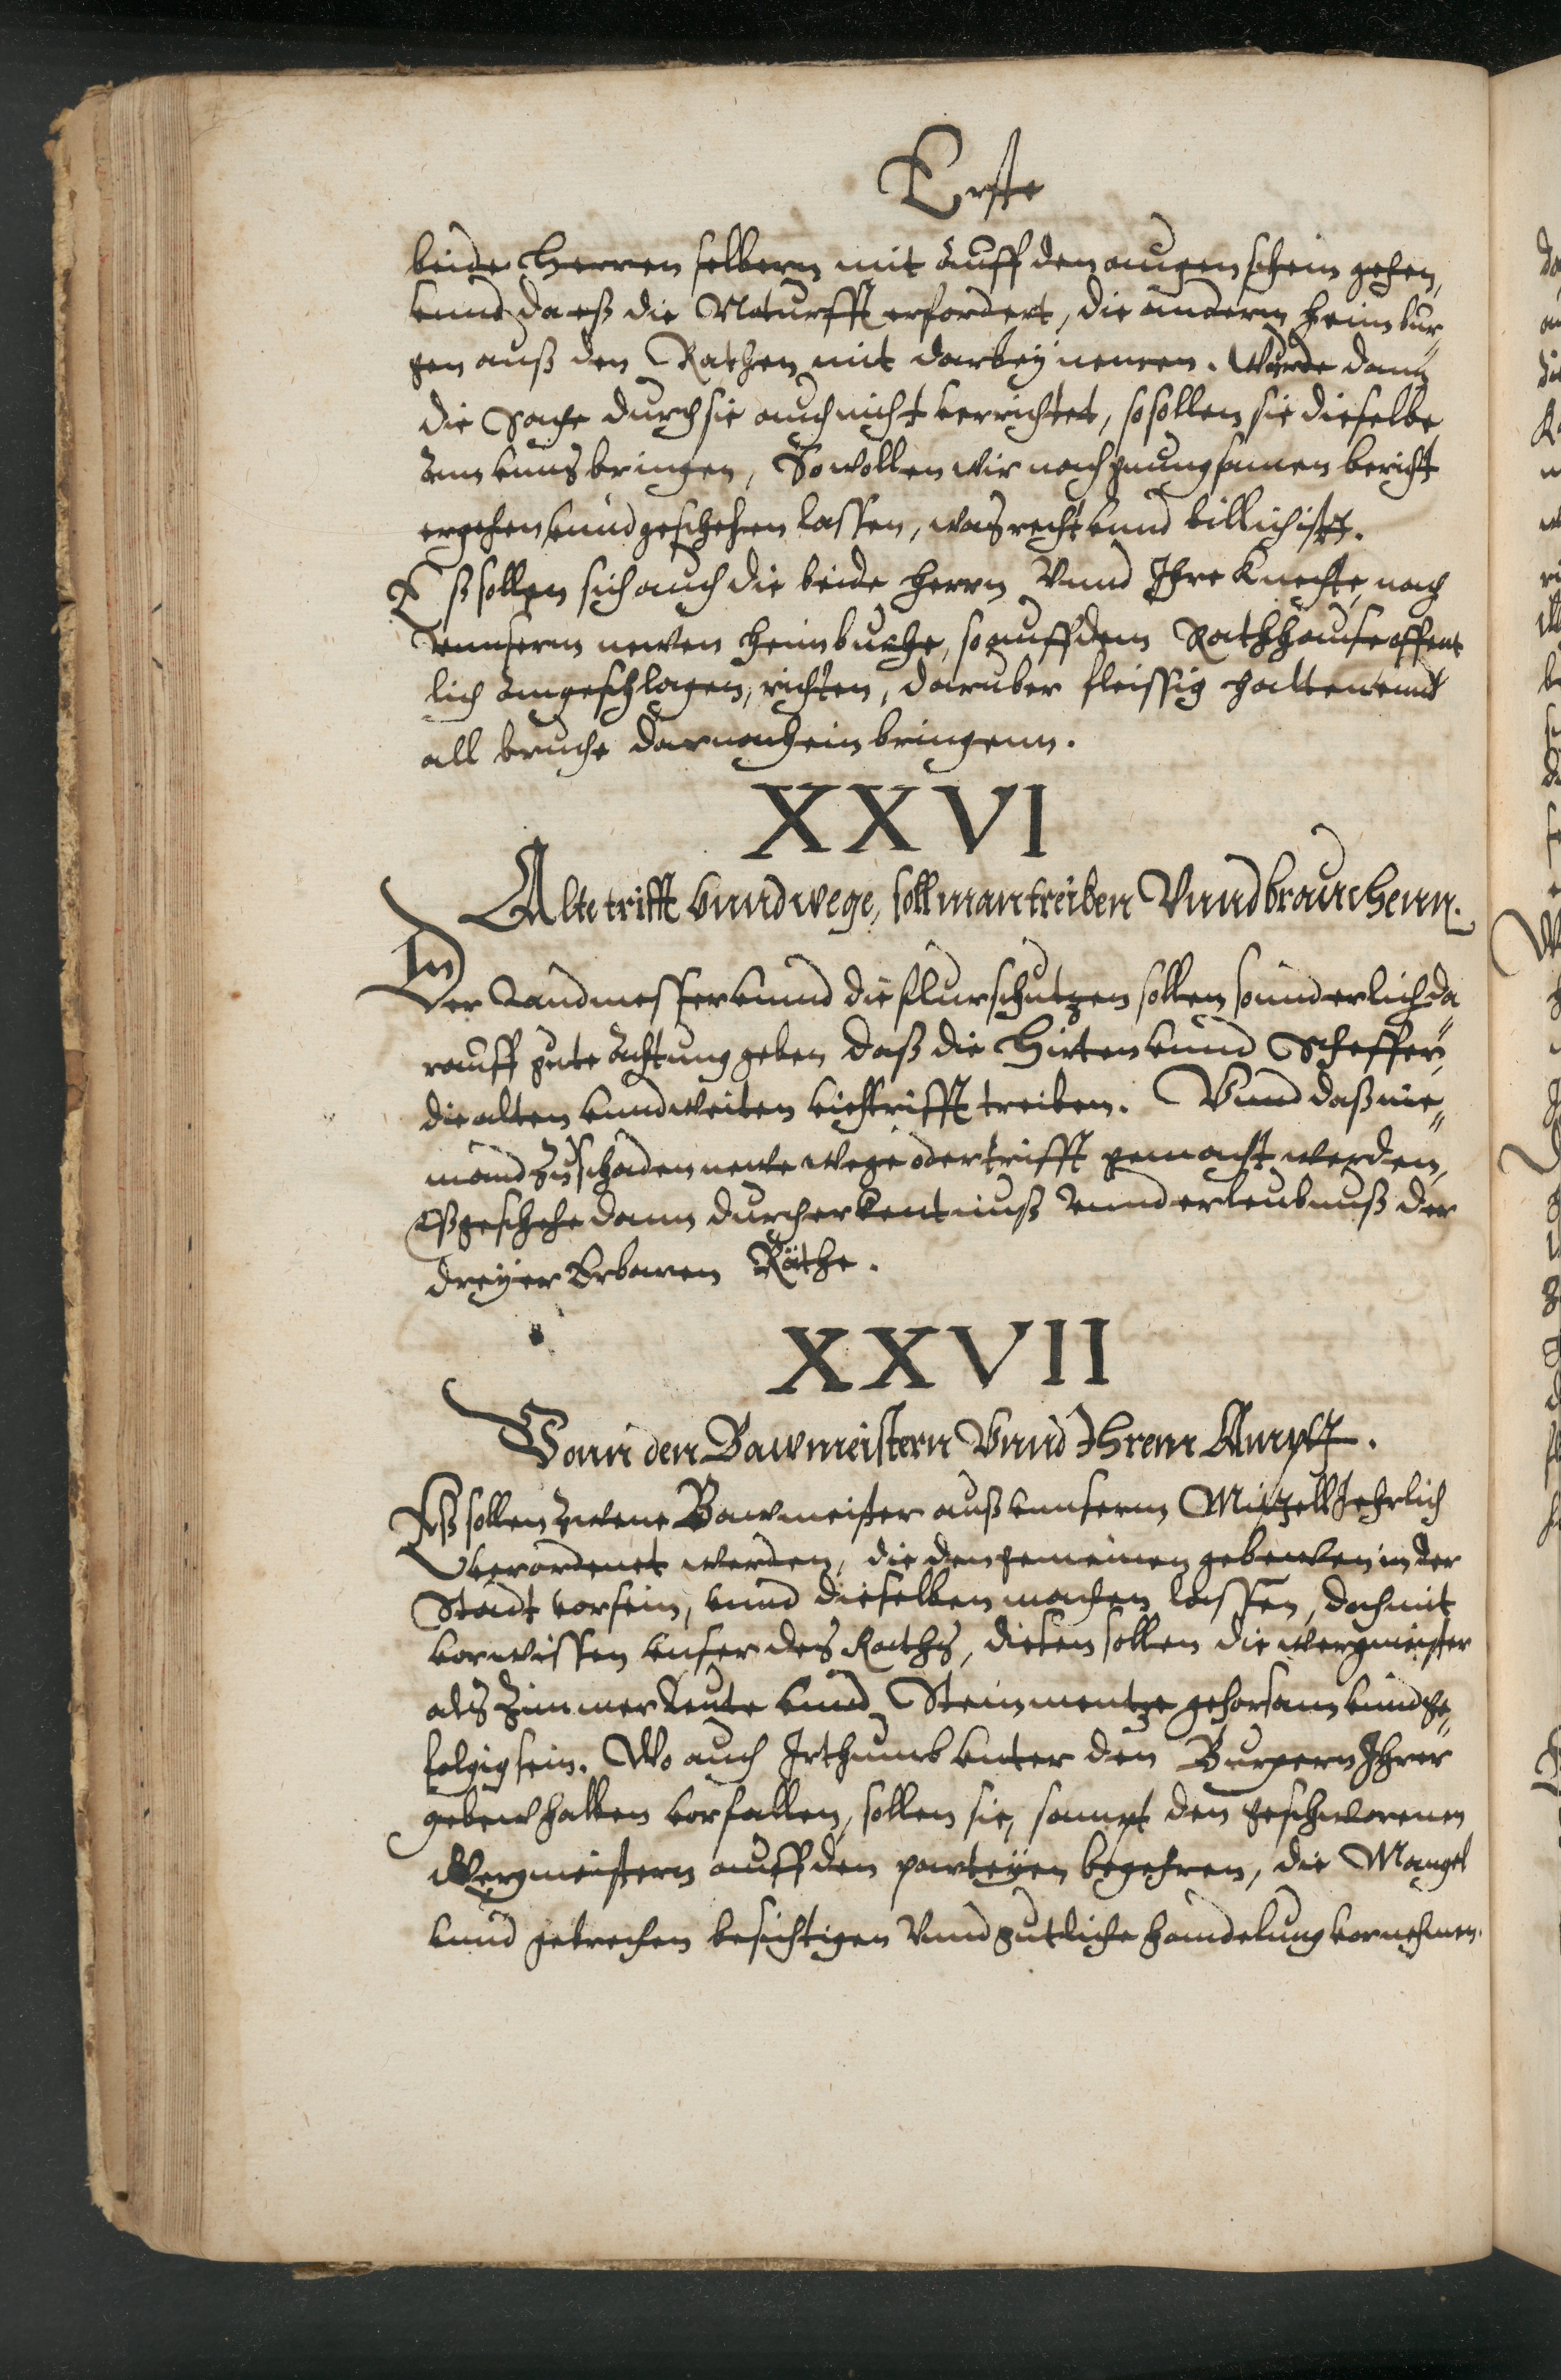 Erste
beide Herren selbern mit auff den augenschein gehen,
vnnd da eß die Noturfft erfordert, die andern heimbur,
gen auß den Rathen mit darbeÿ nemen. Wurde dann
die Sache durch sie auch nicht verrichtet, so sollen sie dieselbe
ann vnns bringen, So wollen wir nach gnungsamen bericht
ergehen vnnd geschehen lassen, was recht vnnd billich ist.
Eß sollen sich auch die beide herrn Vnnd Ihre Knechte, nach
vnnserm newen heimbuche, so auff dem Rathhause offent
lich angeschlagen, richten, daruber fleissig halten vnnd
all bruche darnach einbringenn.
XXVI
Alte trifft vnnd wege, soll man treiben Vnnd brauchenn.
Der Landmesser vnnd die flurschutzen sollen sonnderlich da
rauff gute achtung geben daß die Hirten vnnd Scheffer,
die alten vnnd weiten viehtrifft treiben. Vnnd daß nie,
mand zu schaden newe wege oder trifft gemacht werden,
Eß geschehe dann durch erkentnuß vnnd erleubnuß der
dreÿer Erbaren Räthe.
XXVII
Vonn den Bawmeistern Vnnd Ihrem Ampt.
Eß sollen zwene Bawmeister auß vnnserm Mittell Jehrlich
verordenet werden, die den gemeinen gebewen in der
Stadt vorsein, vnnd dieselben machen lassen, doch mit
vorwissen vnser des Raths, diesen sollen die wergmeister
als Zimmerleute vnnd Steinmentze gehorsam vnnd ge,
folgig sein. Wo auch Irthumb vnter den Burgern Ihrer
gebew halben vorfallen, sollen sie, sampt den geschworenen
Wergmeistern auff den parteÿen begehren, die Mangel
vnnd gebrechen besichtigen Vnnd gutliche handelung vornehmen.